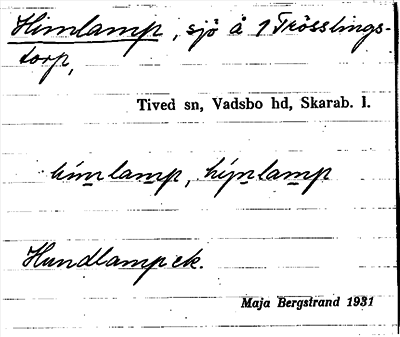 Himlamp, sjö å 1 Trösslings-
torp,
Tived sn, Vadsbo hd, Skarab. l.
hímlamp, hýnlamp
Hundlamp ek.
Maja Bergstrand 1931